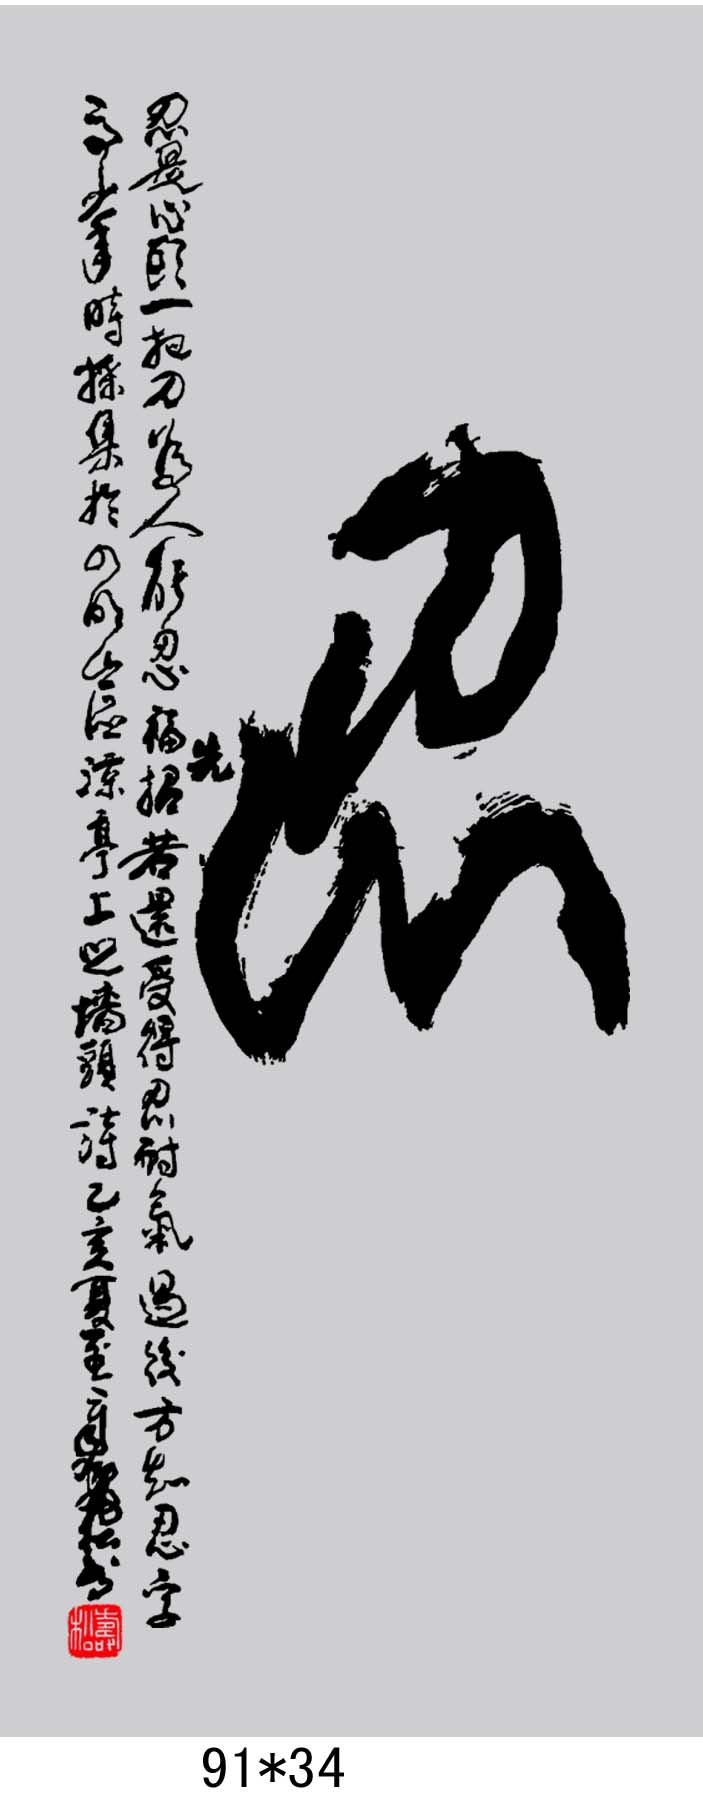 忍
忍是心頭一把刀為人能忍福招若還受得忍耐氣過後方知忍字
先
高少年時採集於四明山區涼亭上之墻頭詩乙亥夏至
壽松
91*34